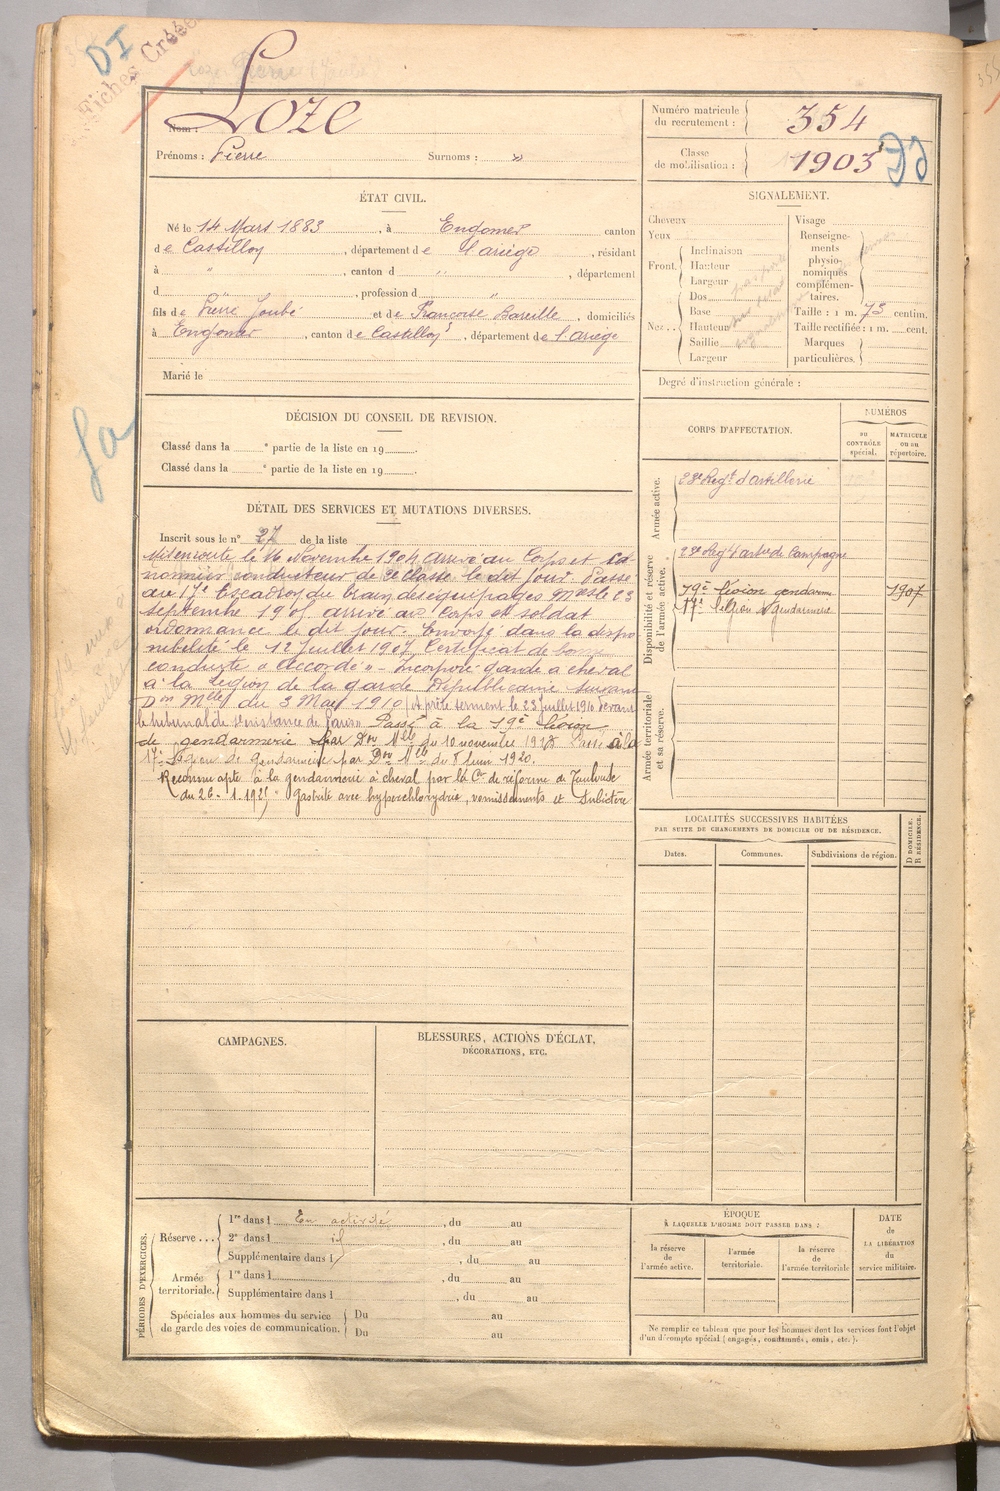 DI
Fiches Créées
Nom : Loze
Prénoms : Pierre Surnoms : »
Numéro matricule
du recrutement : 354
Classe
de mobilisation : 1903
ÉTAT CIVIL.
Né le 14 Mars 1883, à Engomer canton
de Castillon, département de l'ariège, résidant
à " , canton d " , département
d " , profession d "
fils de Pierre Joubé et de Françoise Bareille, domiciliés
à Engomer, canton de Castillon, département de l'ariège
Marié le
SIGNALEMENT.
Cheveux
Yeux
Front
Inclinaison
Hauteur
Largeur
Nez
Dos
Base
Hauteur
Saillie
Largeur
Visage
Renseigne-
ments
physio-
nomiques
complémen-
taires.
Taille : 1 m. 73 centim.
Taille rectifiée : 1 m. cent.
Marques
particulières.
Degré d'instruction générale :
DÉCISION DU CONSEIL DE REVISION.
Classé dans la e partie de la liste en 19 .
Classé dans la e partie de la liste en 19 .
DÉTAIL DES SERVICES ET MUTATIONS DIVERSES.
Inscrit sous le n° 27 de la liste
Mis en route le 16 Novembre 1904 arrivé au Corps et Ca-
nonnier conducteur de 2e Classe le dit jour. Passé
au 17e Escadron du train des équipages Mres le 23
Septembre 1905 arrivé au Corps et soldat
ordonnance le dit jour. Envoyé dans la dispo-
nibilité le 12 Juillet 1907 Certificat de bonne
conduite « Accordé » - Incorporé garde à cheval
à la Légion de la garde Républicaine suivant
Don Mlle du 3 Mai 1910 A prêté serment le 23 Juillet 1910 devant
le tribunal de 1e instance de Paris. Passé à la 19e légion
de gendarmerie par Don Mlle du 10 novembre Passé à la
17e Légion de gendarmerie par Don Mlle du 8 Juin 1920.
Reconnu apte à la gendarmerie à cheval par la Con de réforme de Toulouse
du 26-1-192 " Gastrite avec hyperchlorydrie, vomissements et Subictère
CORPS D'AFFECTATION.
NUMÉROS
au
CONTRÔLE
spécial.
MATRICULE
ou au
répertoire.
Armée active.
28e Regt d'artillerie
Disponibilité et réserve
de l'armée active.
23e Regt artie de Campagne
19e légion gendarm 1907
17e légion de gendarmerie
Armée territoriale
et sa réserve.
LOCALITÉS SUCCESSIVES HABITÉES
PAR SUITE DE CHANGEMENTS DE DOMICILE OU DE RÉSIDENCE.
Dates.
Communes.
Subdivisions de région.
D DOMICILE.
R RÉSIDENCE.
CAMPAGNES.
BLESSURES, ACTIONS D'ÉCLAT,
DÉCORATIONS, ETC.
PÉRIODES D'EXERCICES.
Réserve ...
1re dans l En activité , du au
2e dans l id , du au
Supplémentaire dans l , du au
Armée
territoriale.
1re dans l , du au
Supplémentaire dans l , du au
Spéciales aux hommes du service
de garde des voies de communication.
Du au
Du au
ÉPOQUE
À LAQUELLE L'HOMME DOIT PASSER DANS :
la réserve
de
l'armée active.
l'armée
territoriale.
la réserve
de
l'armée territoriale
DATE
de
LA LIBÉRATION
du
service militaire.
Ne remplir ce tableau que pour les hommes dont les services font l'objet
d'un décompte spécial (engagés, condamnés, omis, etc.).